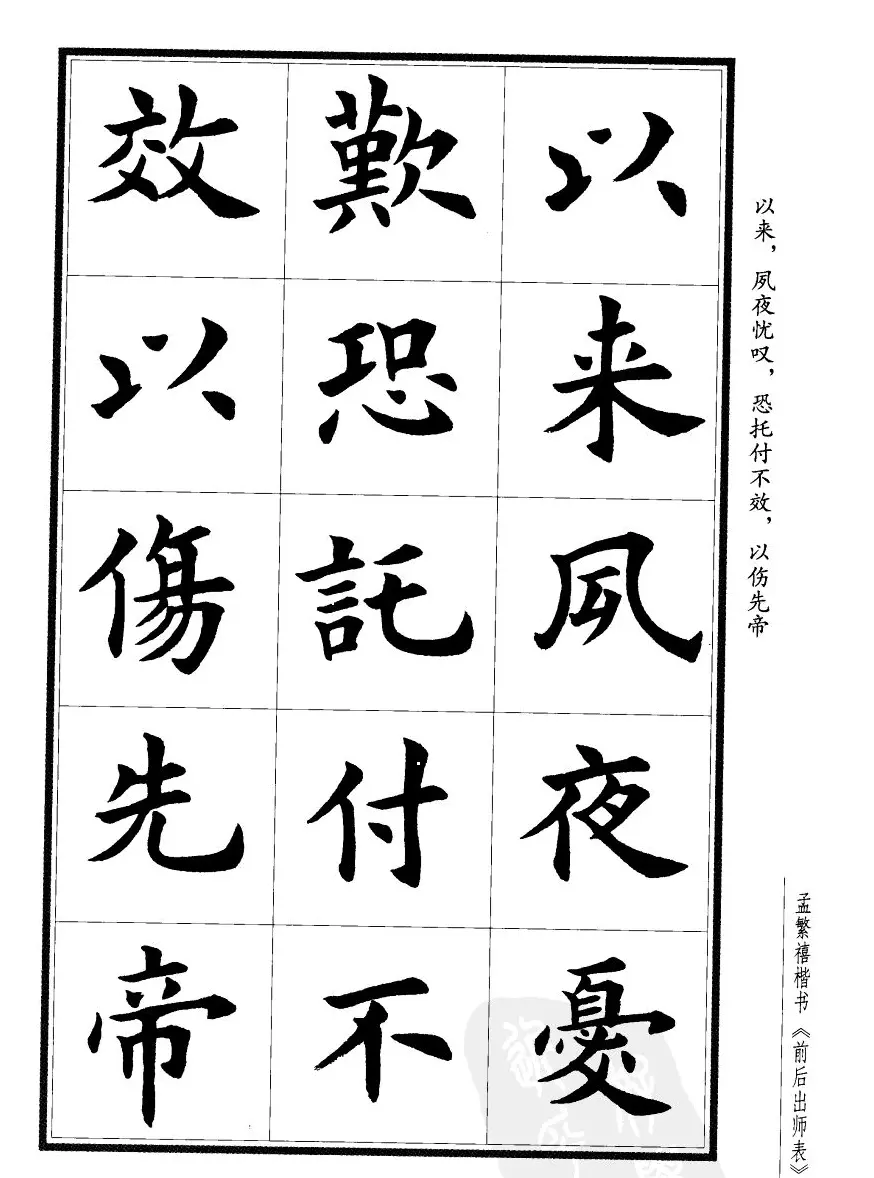 以来夙夜憂
歎恐託付不
效以傷先帝
以来，夙夜忧叹，恐托付不效，以伤先帝
孟繁禧楷书《前后出师表》